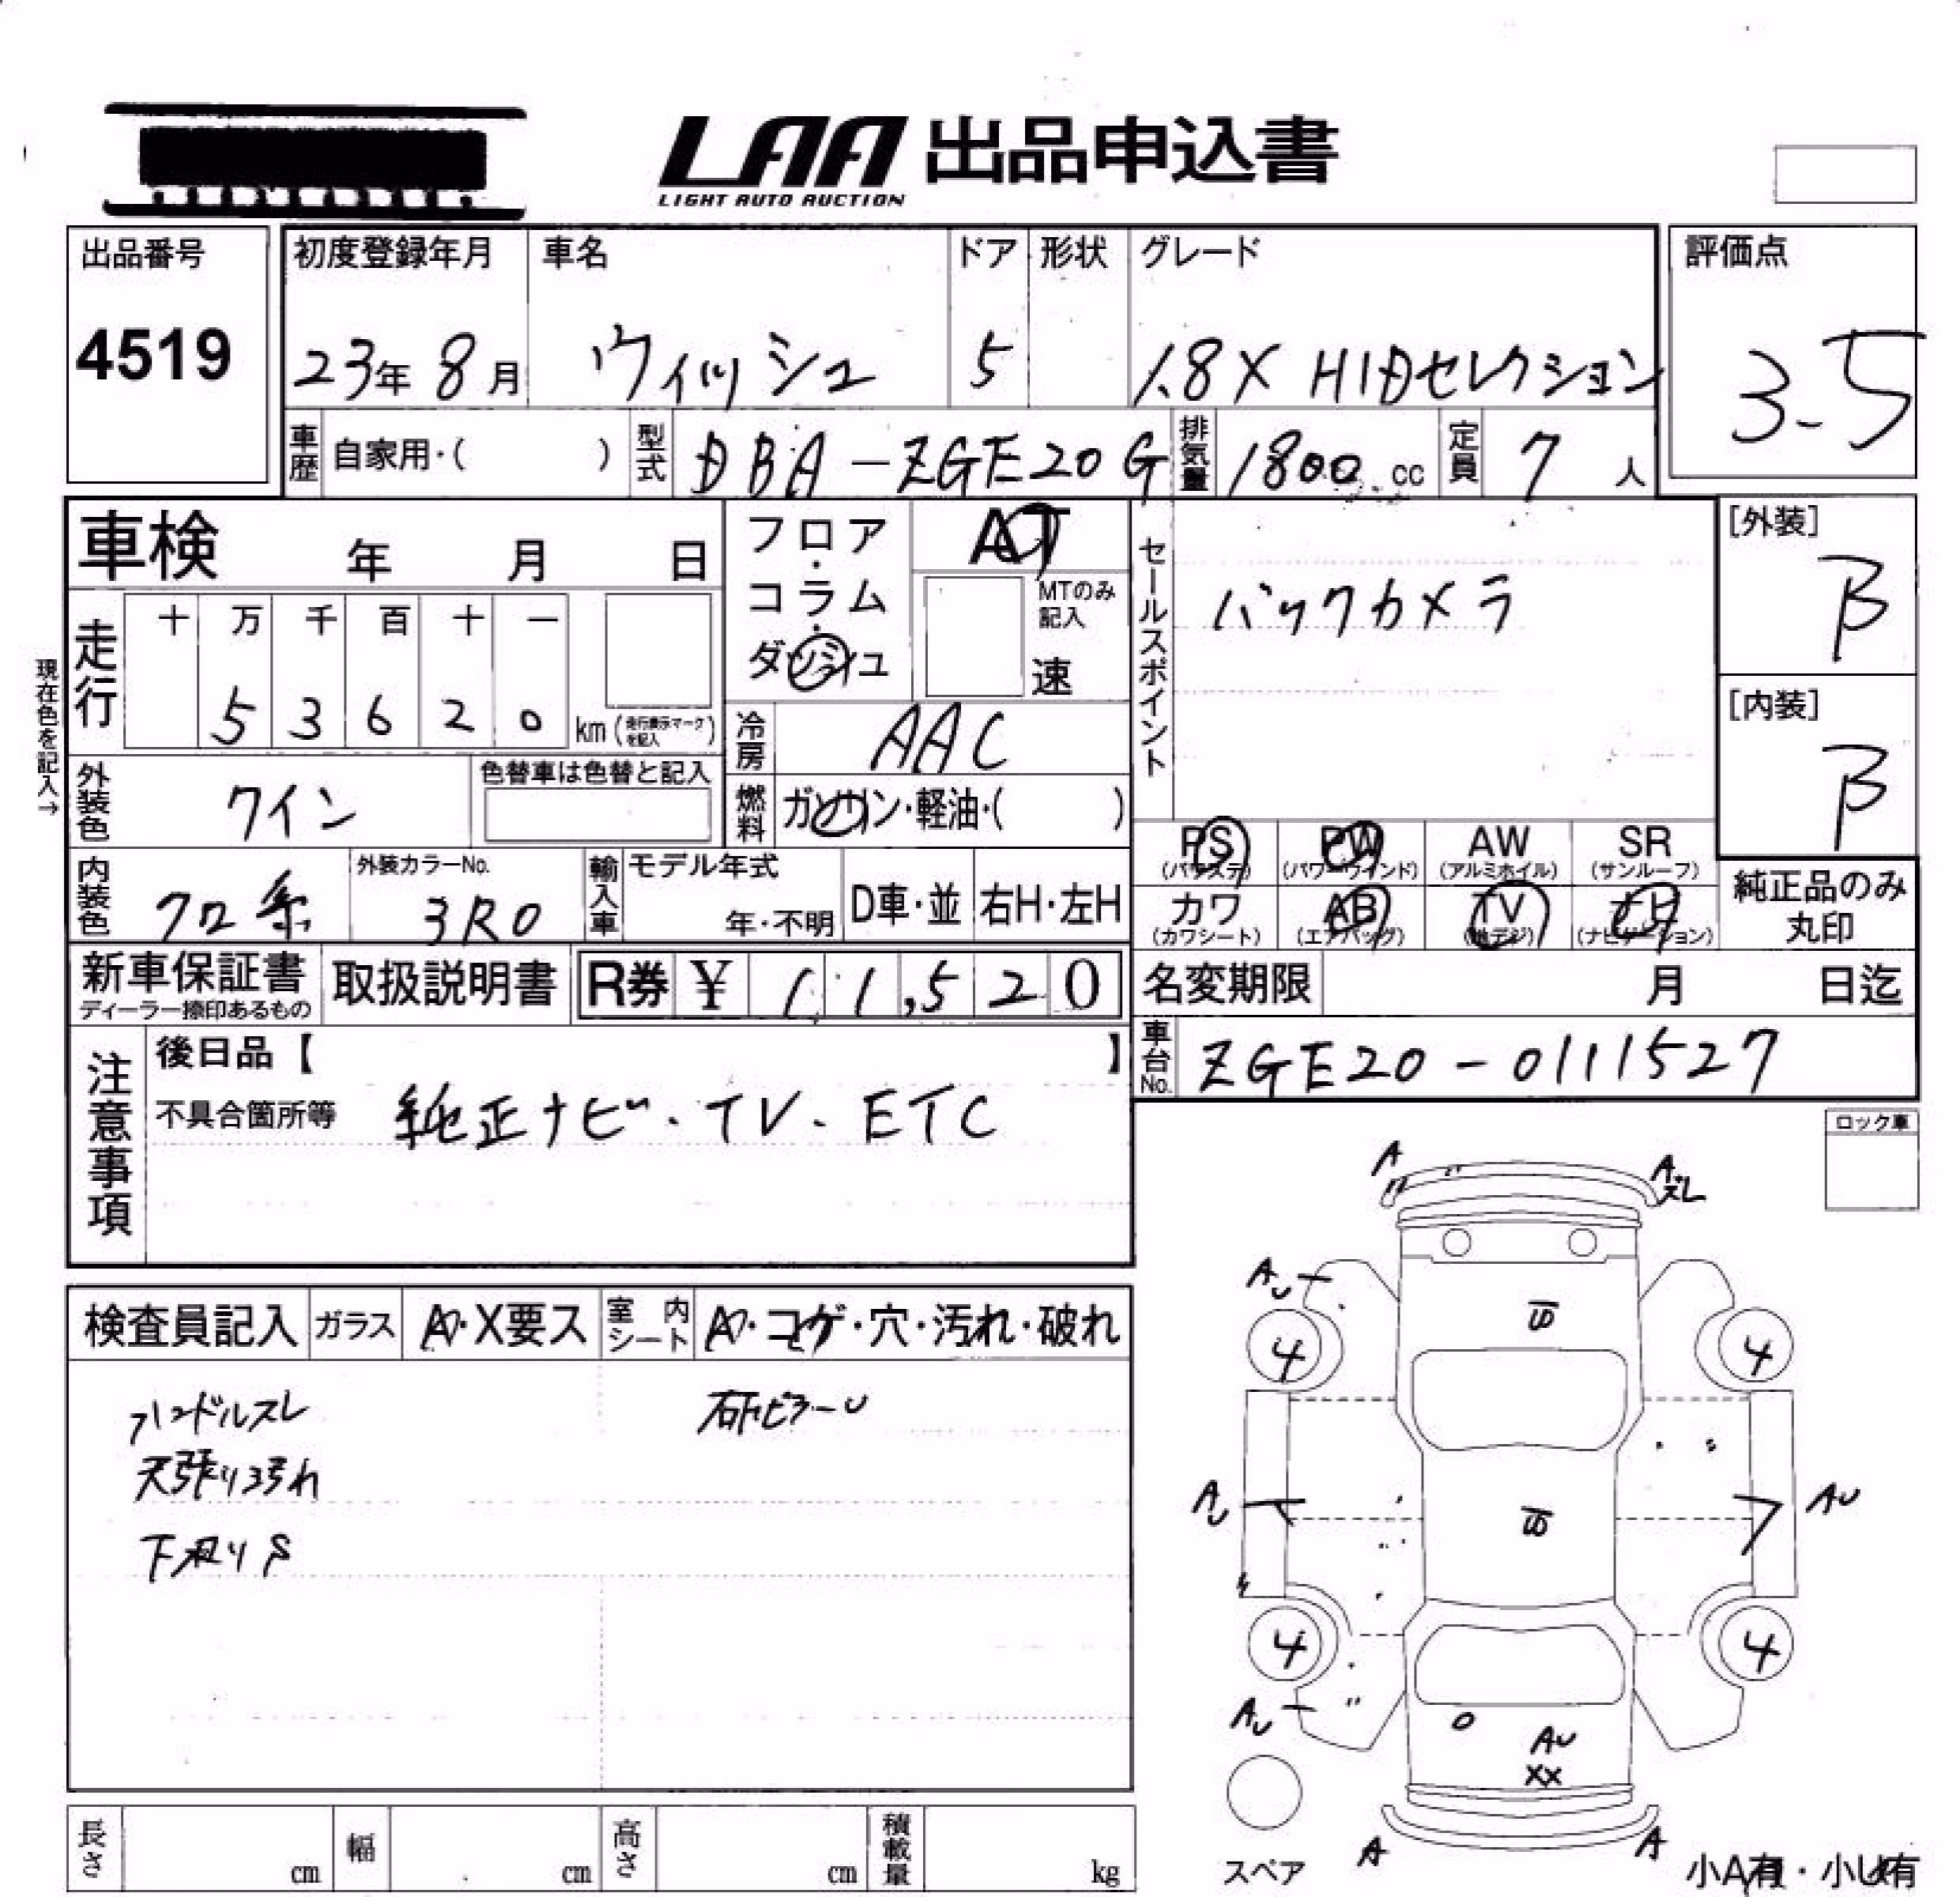 LAA 出品申込書
LIGHT AUTO AUCTION
出品番号
4519
初度登録年月
23年 8月
車名
ウィッシュ
ドア
5
形状
グレード
1.8X HIDセレクション
評価点
3.5
車歴 自家用・( )
型式 DBA-ZGE20G
排気量 1800 cc
定員 7 人
車検 年 月 日
フロア・コラム・ダッシュ
AT
MTのみ記入
速
セールスポイント
バックカメラ
[外装]
B
[内装]
B
現在色を記入→
走行
十 万 千 百 十 一
5 3 6 2 0 km (走行表示マークを記入)
冷房 AAC
外装色 ワイン
色替車は色替と記入
燃料 ガソリン・軽油・( )
PS (パワステ)
PW (パワーウインド)
AW (アルミホイル)
SR (サンルーフ)
カワ (カワシート)
AB (エアバッグ)
TV (地デジ)
ナビ (ナビゲーション)
純正品のみ丸印
内装色 クロ系
外装カラーNo. 3R0
輸入車
モデル年式
年・不明
D車・並
右H・左H
新車保証書
ディーラー捺印あるもの
取扱説明書
R券 ¥ 11,520
名変期限 月 日迄
車台No. ZGE20-0111527
注意事項
後日品【 】
不具合箇所等 純正ナビ・TV・ETC
ロック車
検査員記入
ガラス A・X要ス
室内シート A・コゲ・穴・汚れ・破れ
ハンドルスレ
天張り汚れ
下廻りS
右FピラーU
A
A スレ
AU
4
4
AU
AU
4
4
AU
AU
XX
A
A
スペア
小A有・小U有
長さ cm
幅 cm
高さ cm
積載量 kg